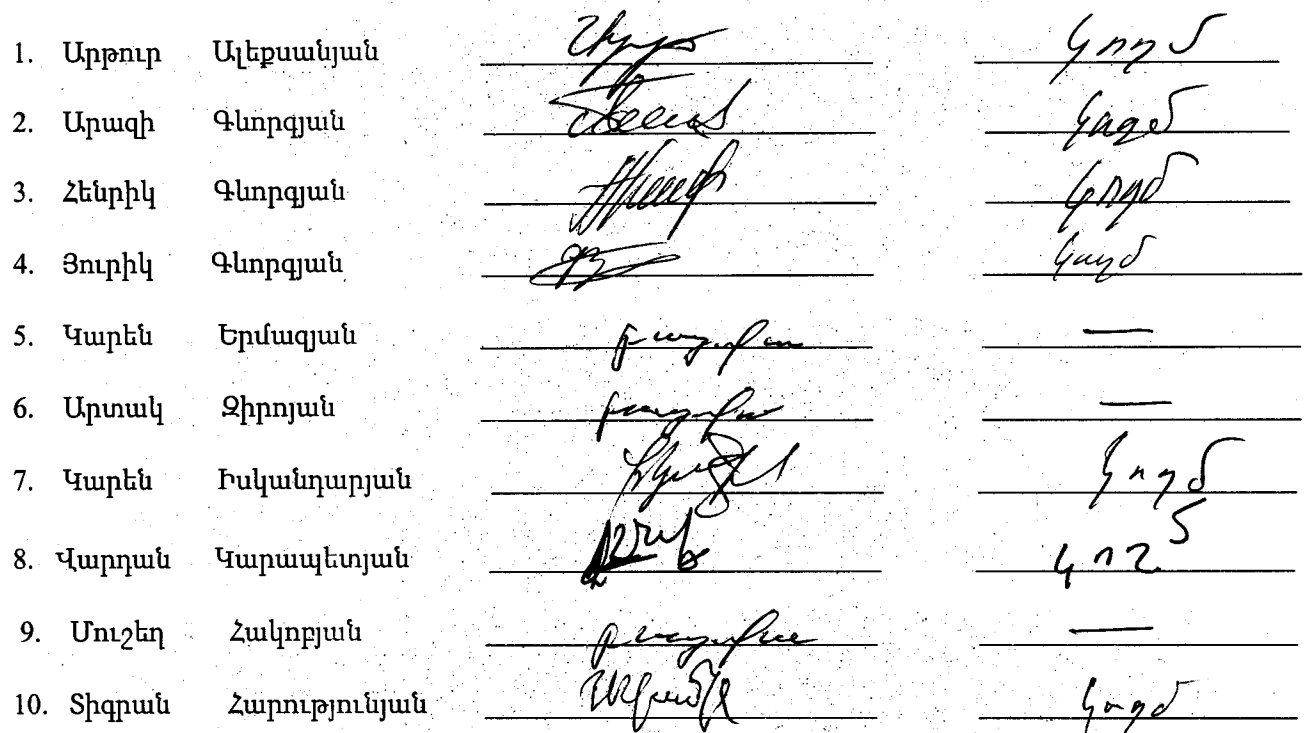 1. Արթուր Ալեքսանյան կողմ
2. Արազի Գևորգյան կողմ
3. Հենրիկ Գևորգյան կողմ
4. Յուրիկ Գևորգյան կողմ
5. Կարեն Երմազյան բացակա —
6. Արտակ Զիրոյան բացակա —
7. Կարեն Իսկանդարյան կողմ
8. Վարդան Կարապետյան կողմ
9. Մուշեղ Հակոբյան բացակա —
10. Տիգրան Հարությունյան կողմ